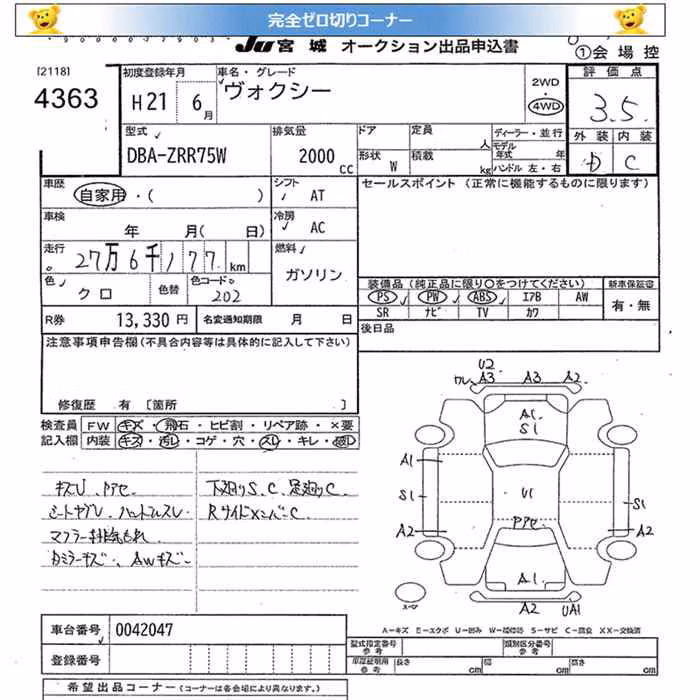 完全ゼロ切りコーナー
JU 宮城 オークション出品申込書
①会場控
[2118]
4363
初度登録年月
H21 6月
車名・グレード
ヴォクシー
2WD
・
4WD
評価点
3.5
外装 内装
D C
型式
DBA-ZRR75W
排気量
2000 cc
ドア
形状 W
定員 人
積載 kg
ディーラー・並行
モデル年式 年
ハンドル 左・右
車歴
自家用・( )
シフト
AT
セールスポイント (正常に機能するものに限ります)
車検
年 月( 日)
冷房
AC
走行
27万6千177km
燃料
ガソリン
色
クロ
色替
色コード
202
装備品(純正品に限り○をつけてください)
新車保証書
PS PW ABS エアB AW
有・無
SR ナビ TV カワ
R券 13,330円
名変通知期限 月 日
後日品
注意事項申告欄(不具合内容等は具体的に記入して下さい)
修復歴 有 [箇所 ]
検査員記入欄
FW キズ・飛石・ヒビ割・リペア跡・×要
内装 キズ・汚レ・コゲ・穴・スレ・キレ・
キズU、アセ
下廻りS、C、足廻りC
シートヤブレ、ハンドルスレ
RサイドメンバーC
マフラー排気もれ
ミラーキズ、AWキズ
U2
ワレ A3 A3 A2
A1
S1
A1
S1
U1
S1
A2
アセ
A2
A1
A2 UA1
スペア
A-キズ E-エクボ U-凹み W-補修跡 S-サビ C-腐食 XX-交換済
車台番号 0042047
登録番号
型式指定番号
参考
類別区分番号
参考
車庫証明用
参考
長さ cm
幅 cm
高さ cm
希望出品コーナー(コーナーは各会場により異なります。)